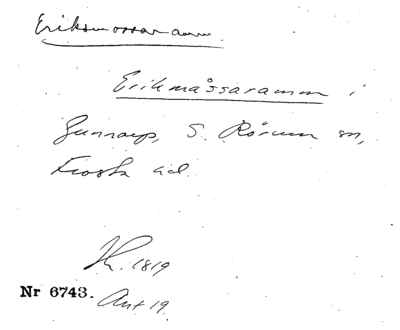 Eriksmossaramm.
Erikmåssaramm i
Gunnarp, S. Rörum sn,
Frosta hd.
K. 1819
Nr 6743. Ant 19.